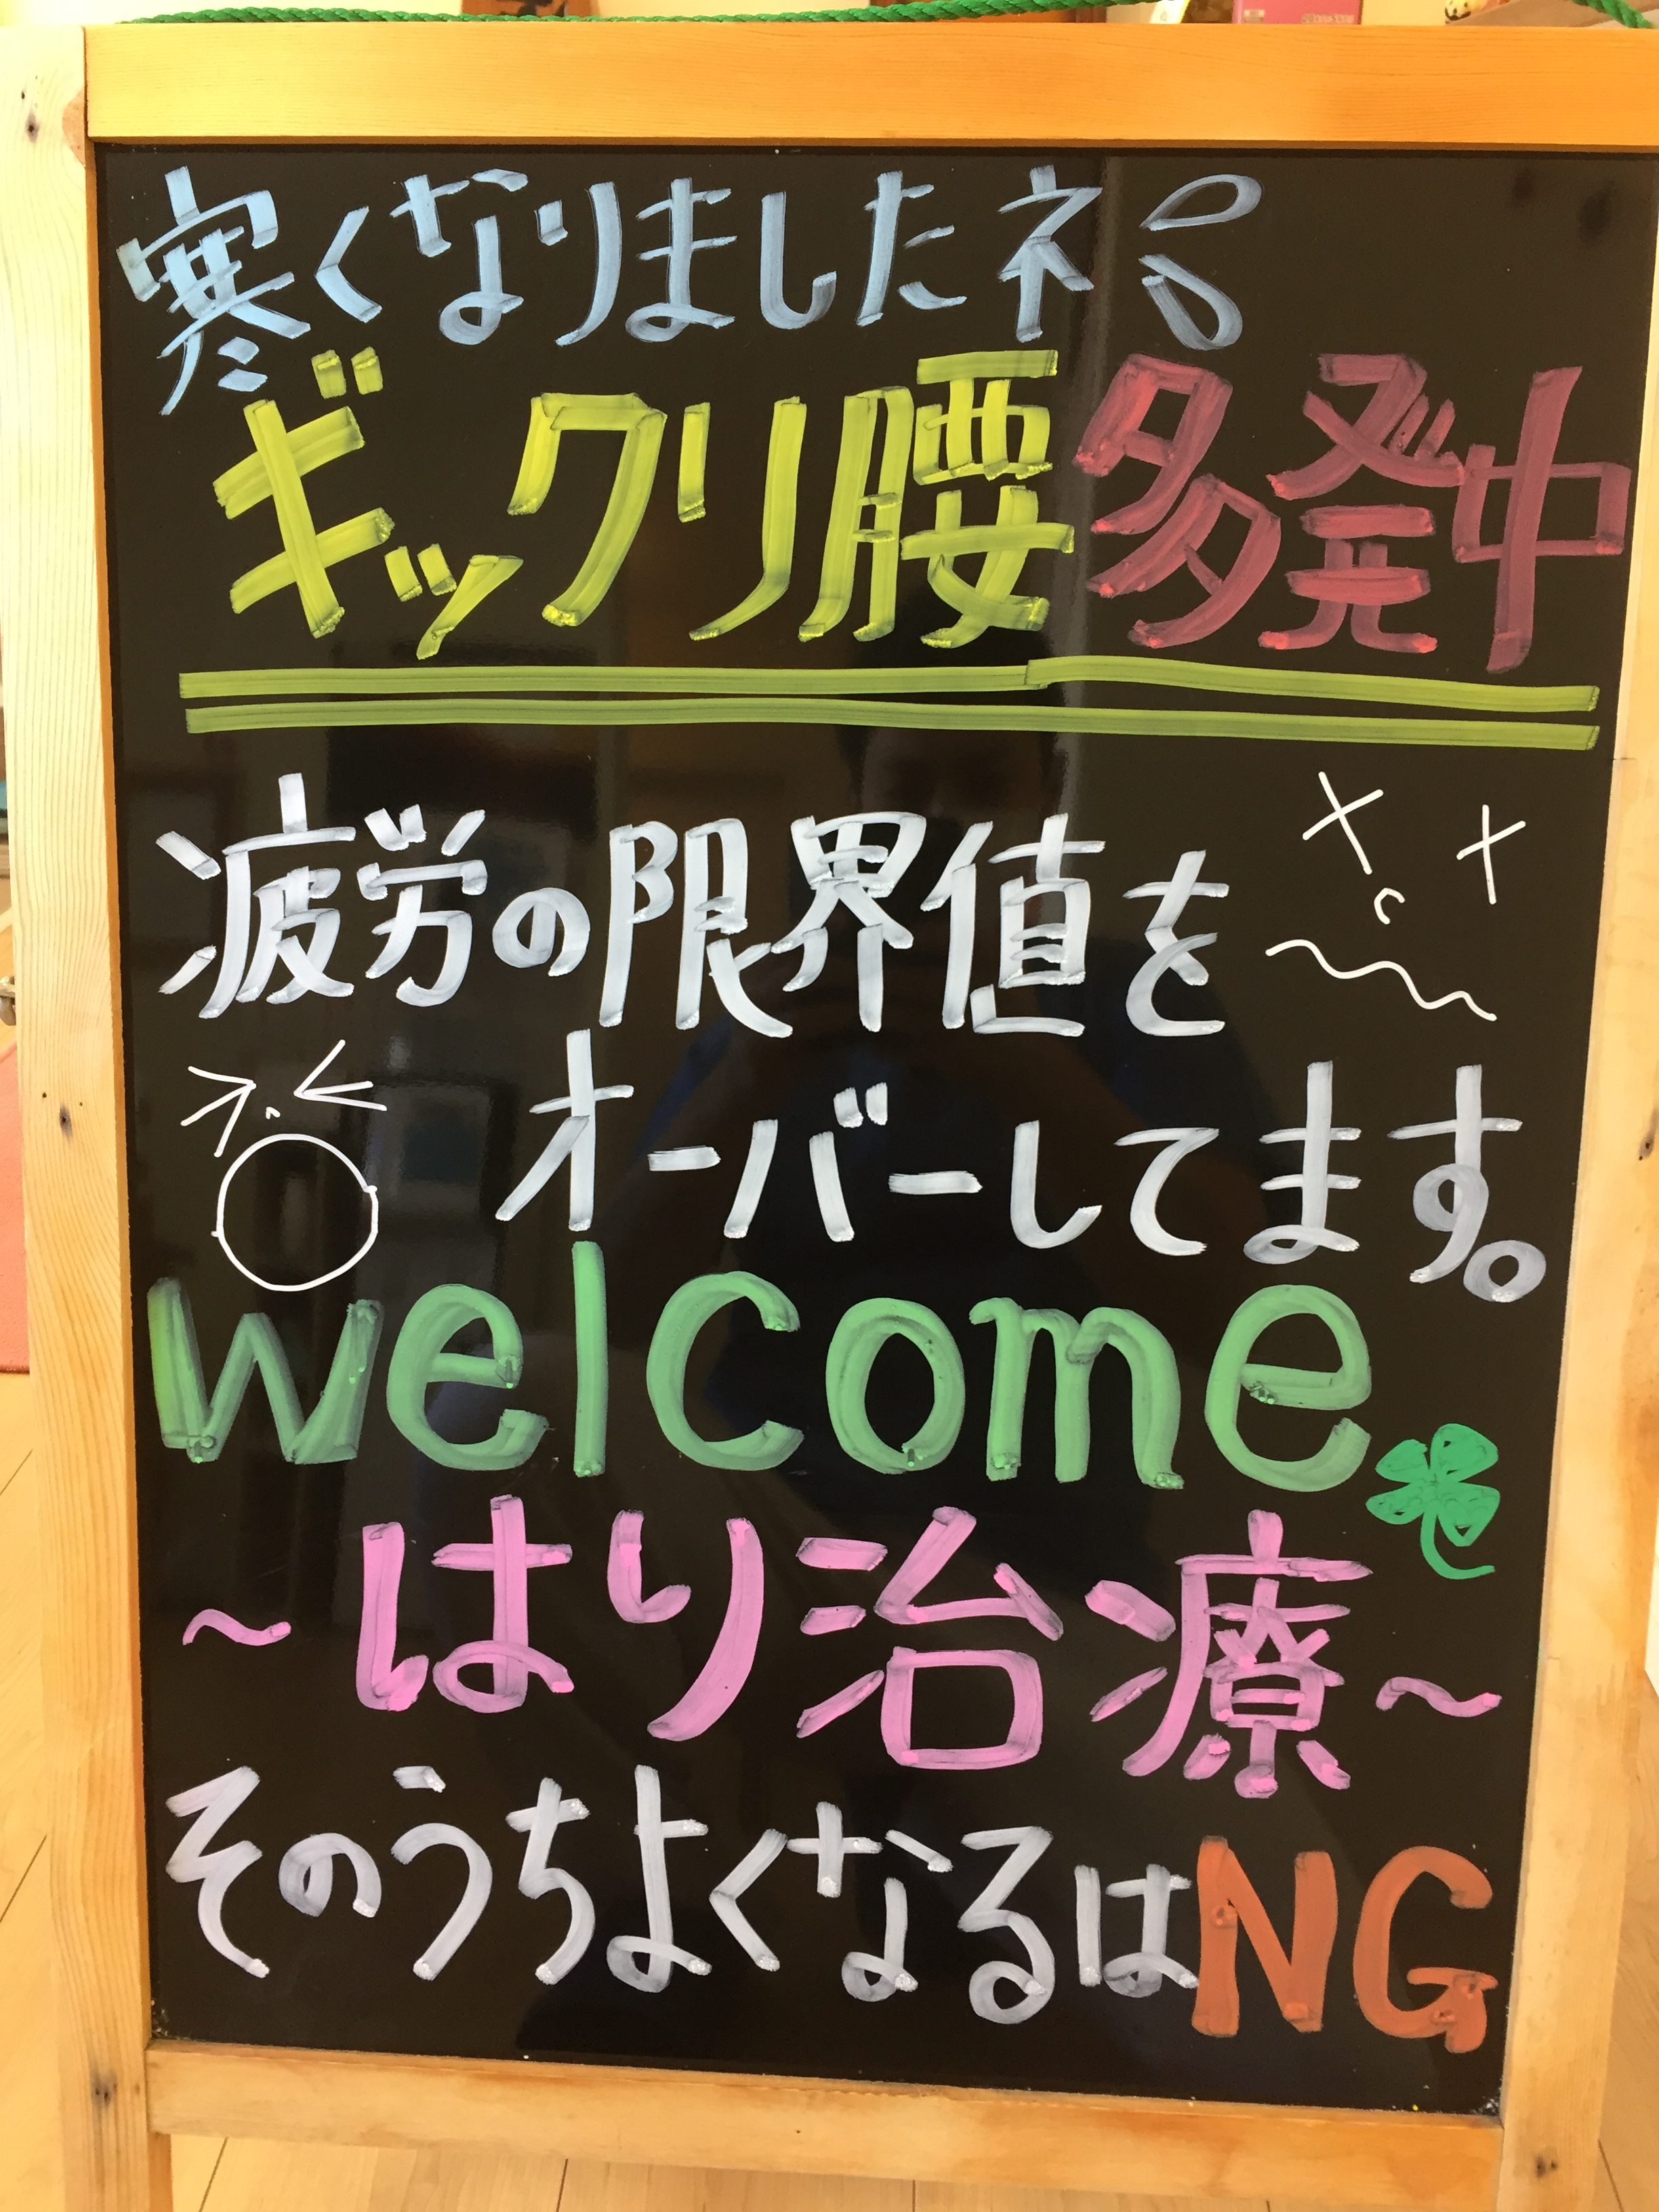 寒くなりましたネ
ギックリ腰多発中
疲労の限界値を
オーバーしてます。
welcome
～はり治療～
そのうちよくなるはNG